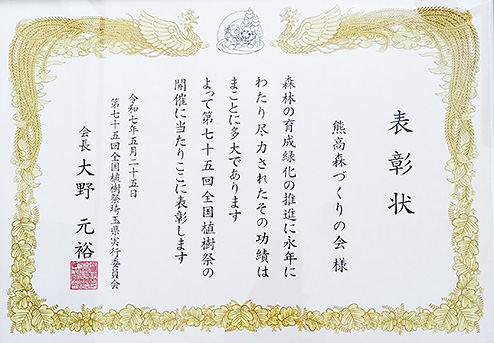 表彰状
熊高森づくりの会 様
森林の育成緑化の推進に永年に
わたり尽力されたその功績は
まことに多大であります
よって第七十五回全国植樹祭の
開催に当たりここに表彰します
令和七年五月二十五日
第七十五回全国植樹祭埼玉県実行委員会
会長 大野 元裕